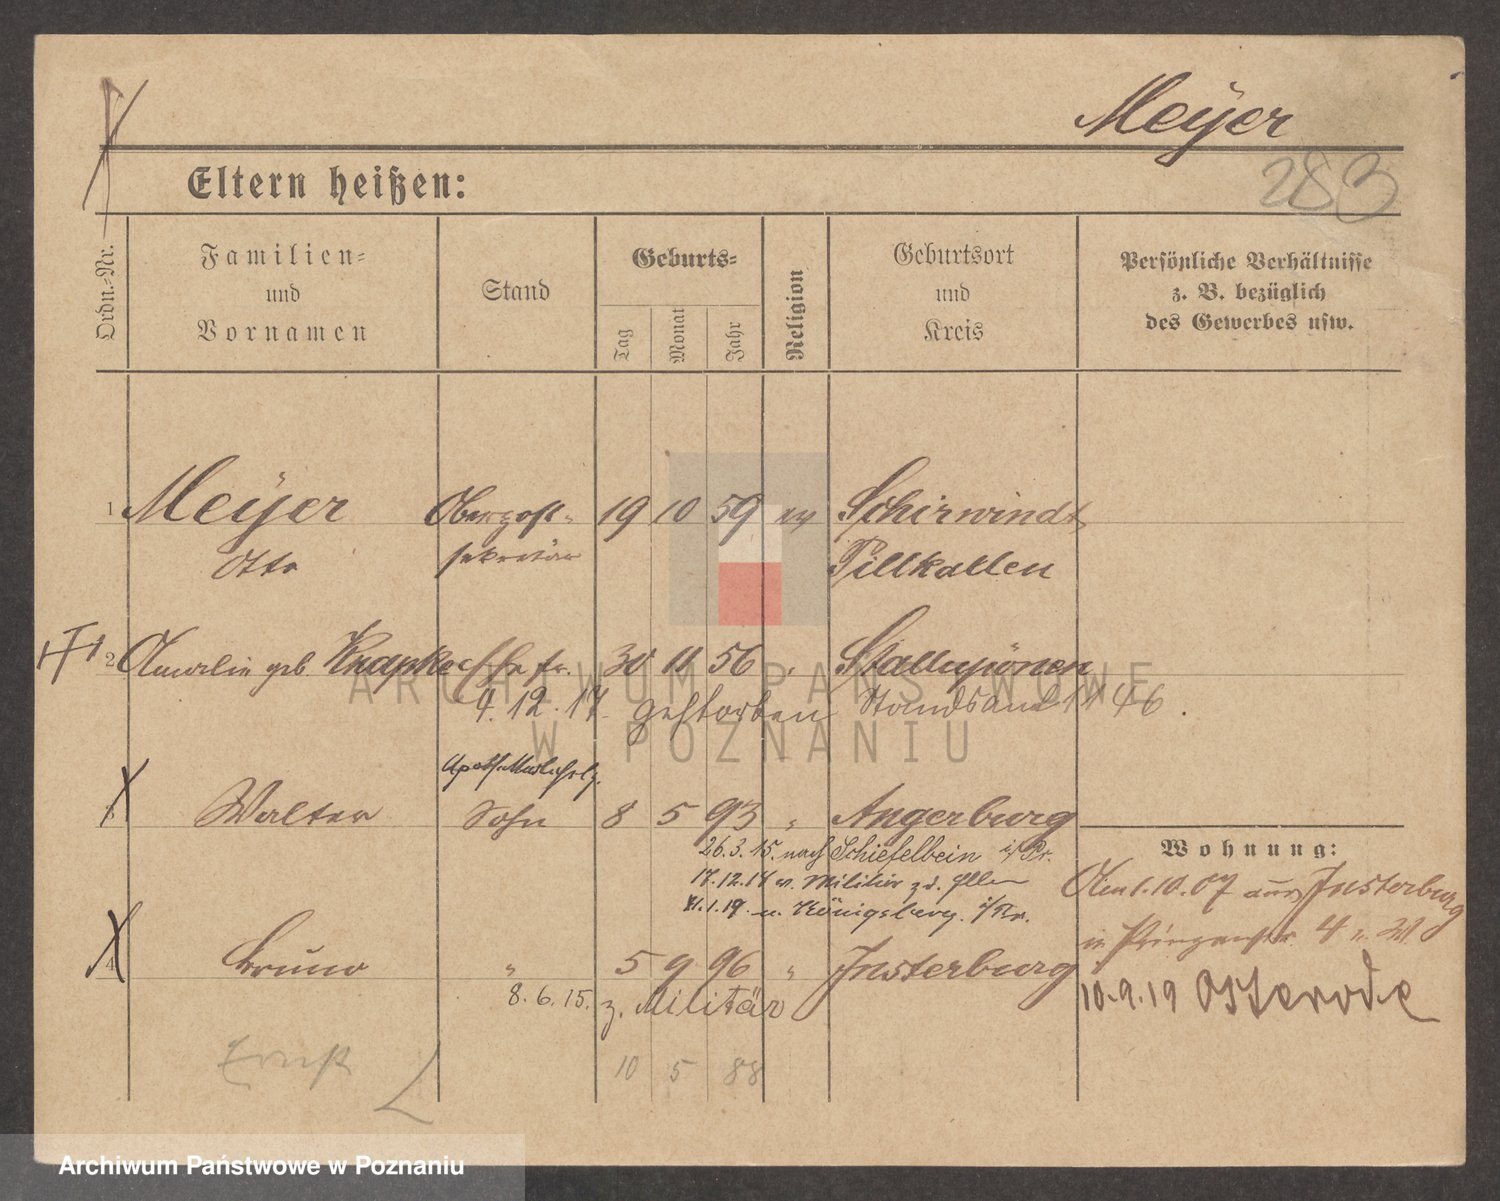 Meÿer
283
Eltern heißen:
Ordn.-Nr.
Familien-
und
Vornamen
Stand
Geburts-
Tag
Monat
Jahr
Religion
Geburtsort
und
Kreis
Persönliche Verhältnisse
z. B. bezüglich
des Gewerbes usw.
1 Meÿer Oberpost- 19 10 59 ev Schirwindt
Otto sekretär Pillkallen
2 Amalie geb. Knapke Ehefr. 30 11 56 " Stallupönen
4. 12. 17. gestorben Standesamt 1146.
Walter Sohn 8 5 93 " Angerburg
26.3.15. nach Schiefelbein i/Pr.
Wohnung:
17.12.17 v. Militär
1.10.07 aus Insterburg
1.19 n. Königsberg i/Pr.
4 Bruno " 5 9 96 " Insterburg
8. 6. 15. z. Militär
10.9.19 Osterode
Ernst 10 5 88
ARCHIWUM PAŃSTWOWE
W POZNANIU
Archiwum Państwowe w Poznaniu